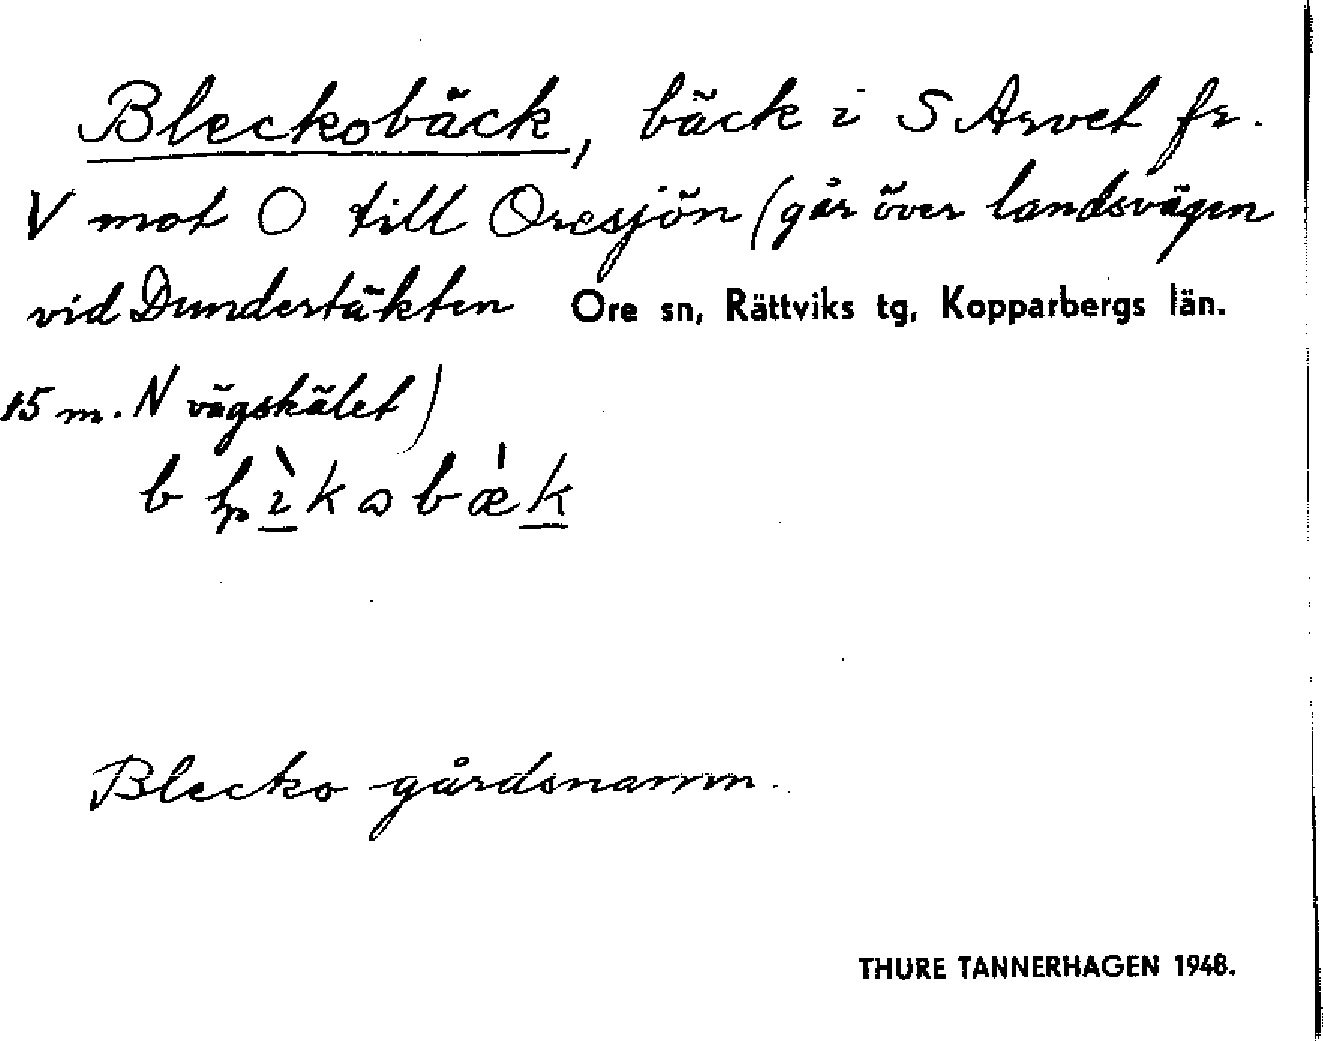 Bleckobäck, bäck i S Arvet fr.
V mot O till Oresjön (går över landsvägen
vid Dundertäkten Ore sn, Rättviks tg, Kopparbergs län.
15 m. N vägskälet)
Blecko gårdsnamn.
THURE TANNERHAGEN 1948.